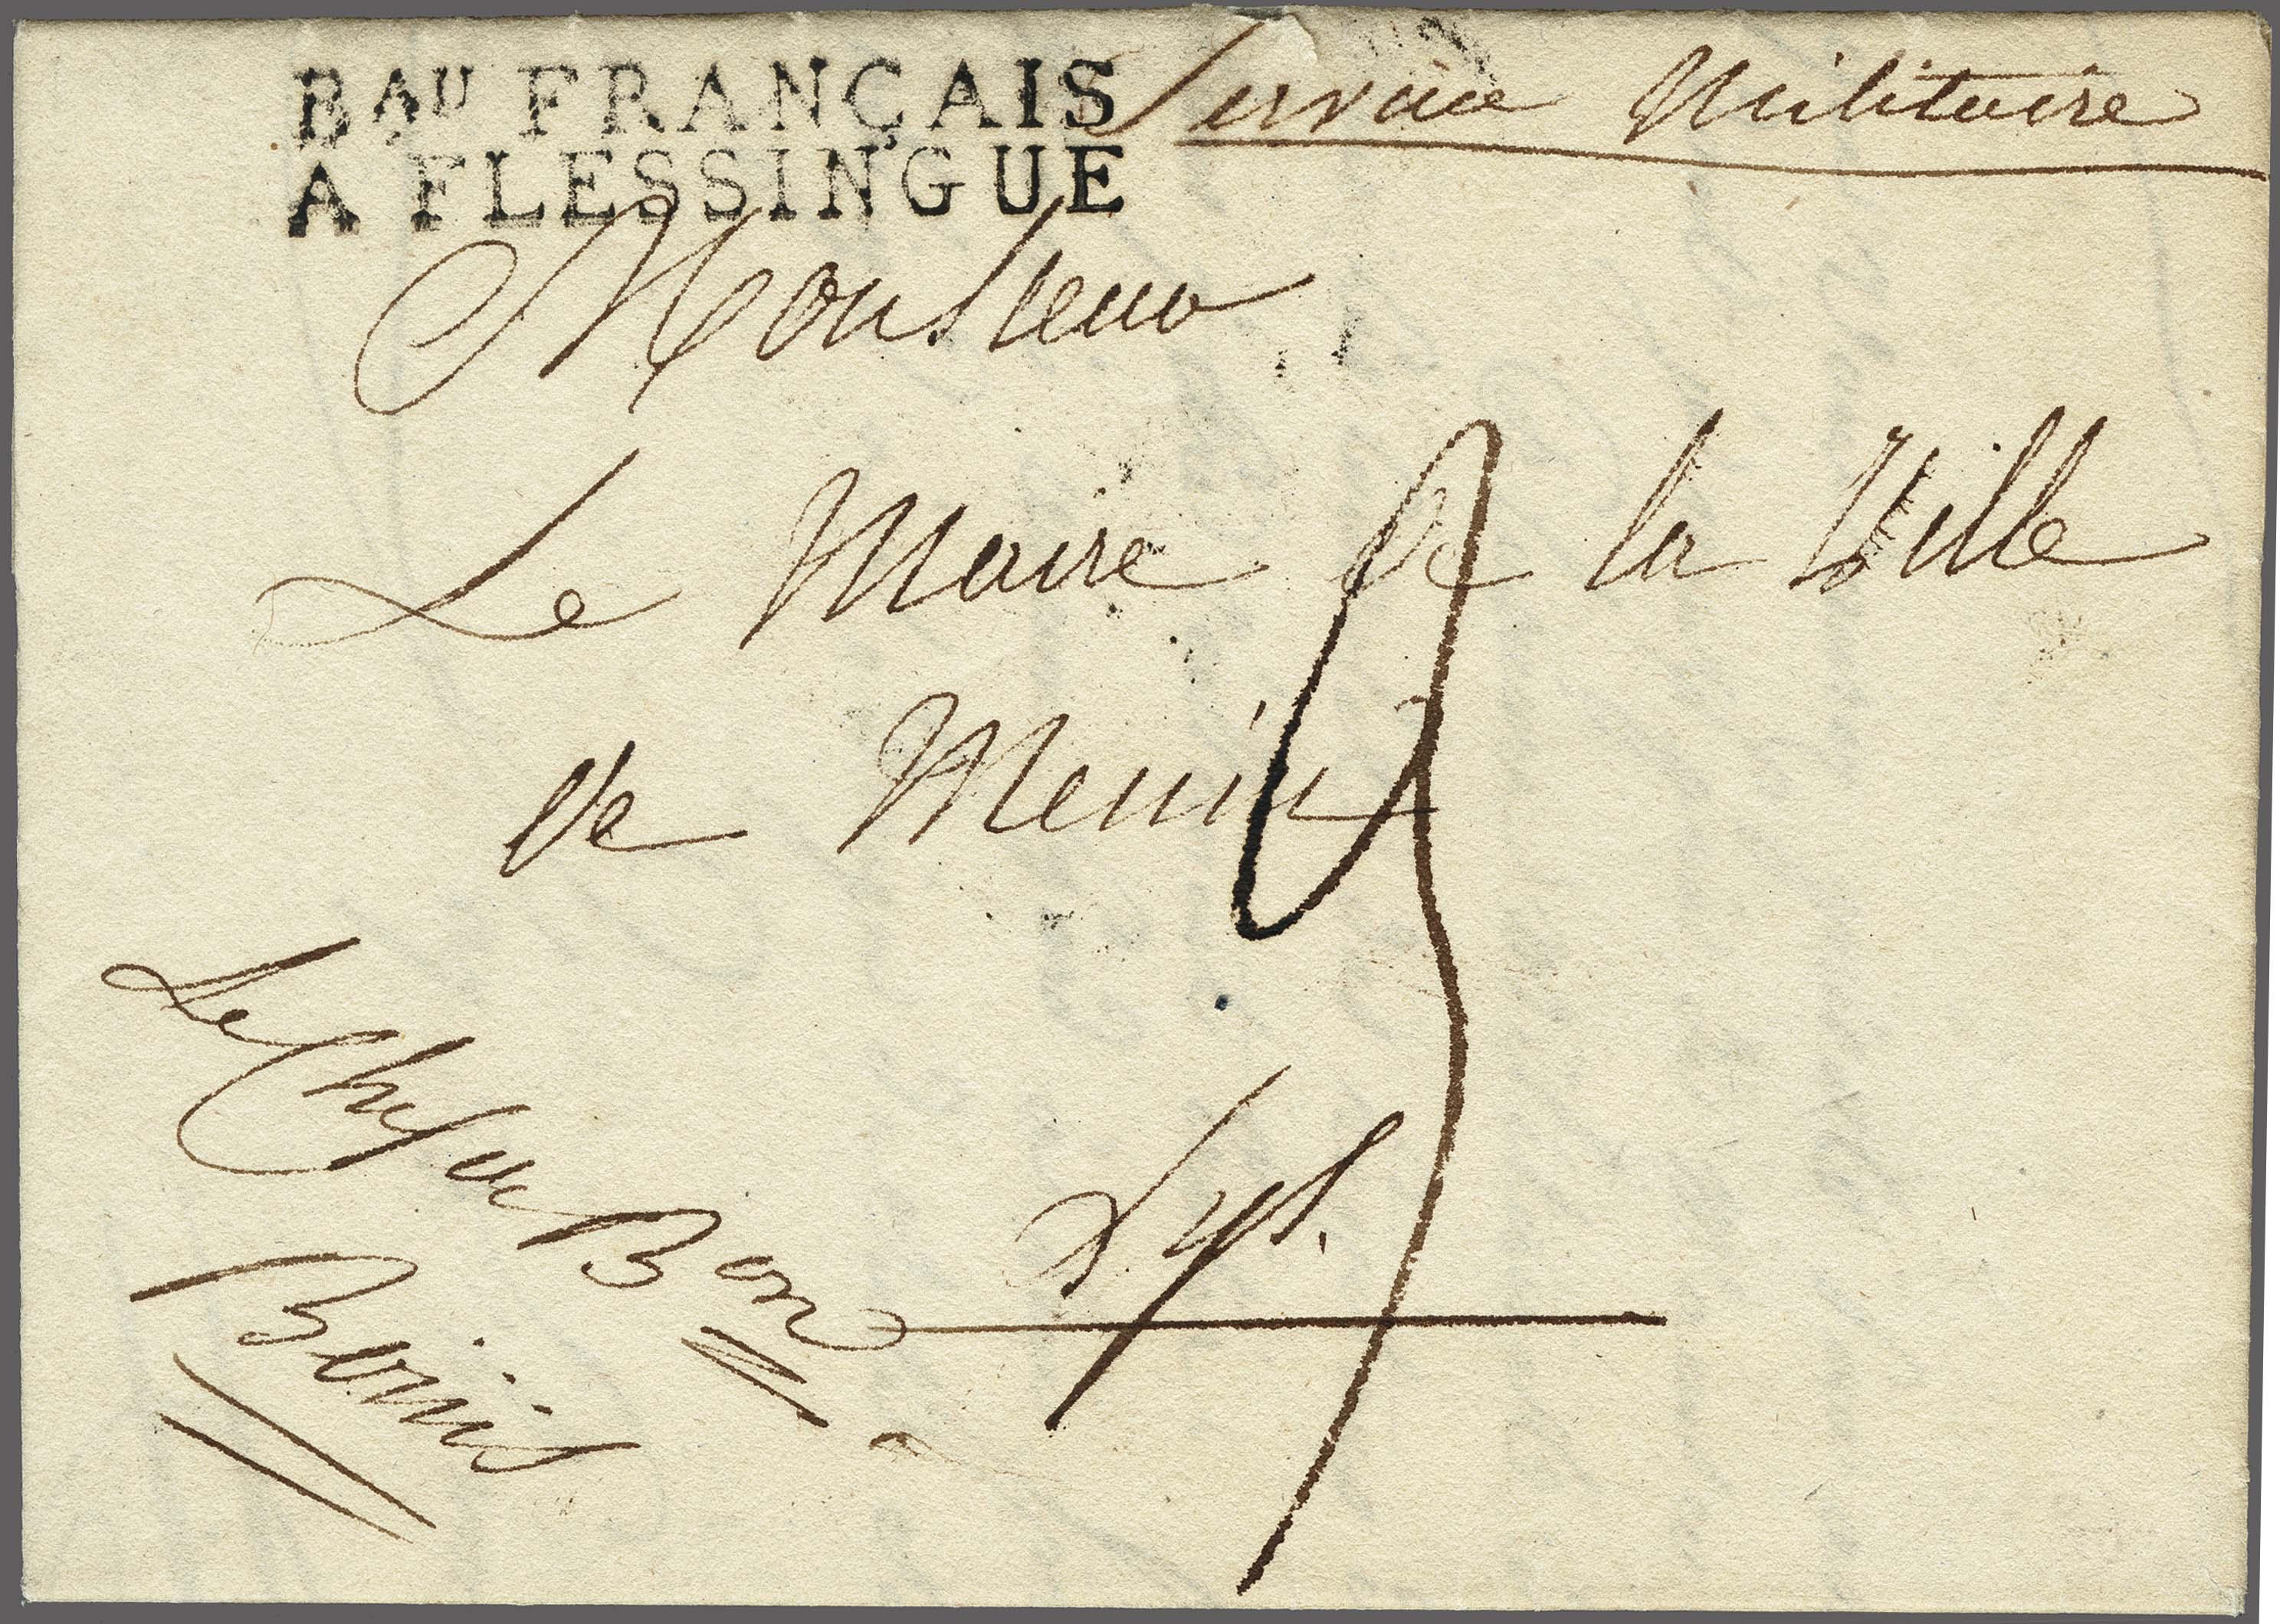 BAU FRANÇAIS
A FLESSINGUE
Service Militaire
Monsieur
Le Maire de la Ville
de Menin
Lys.
Le Chef de Bon